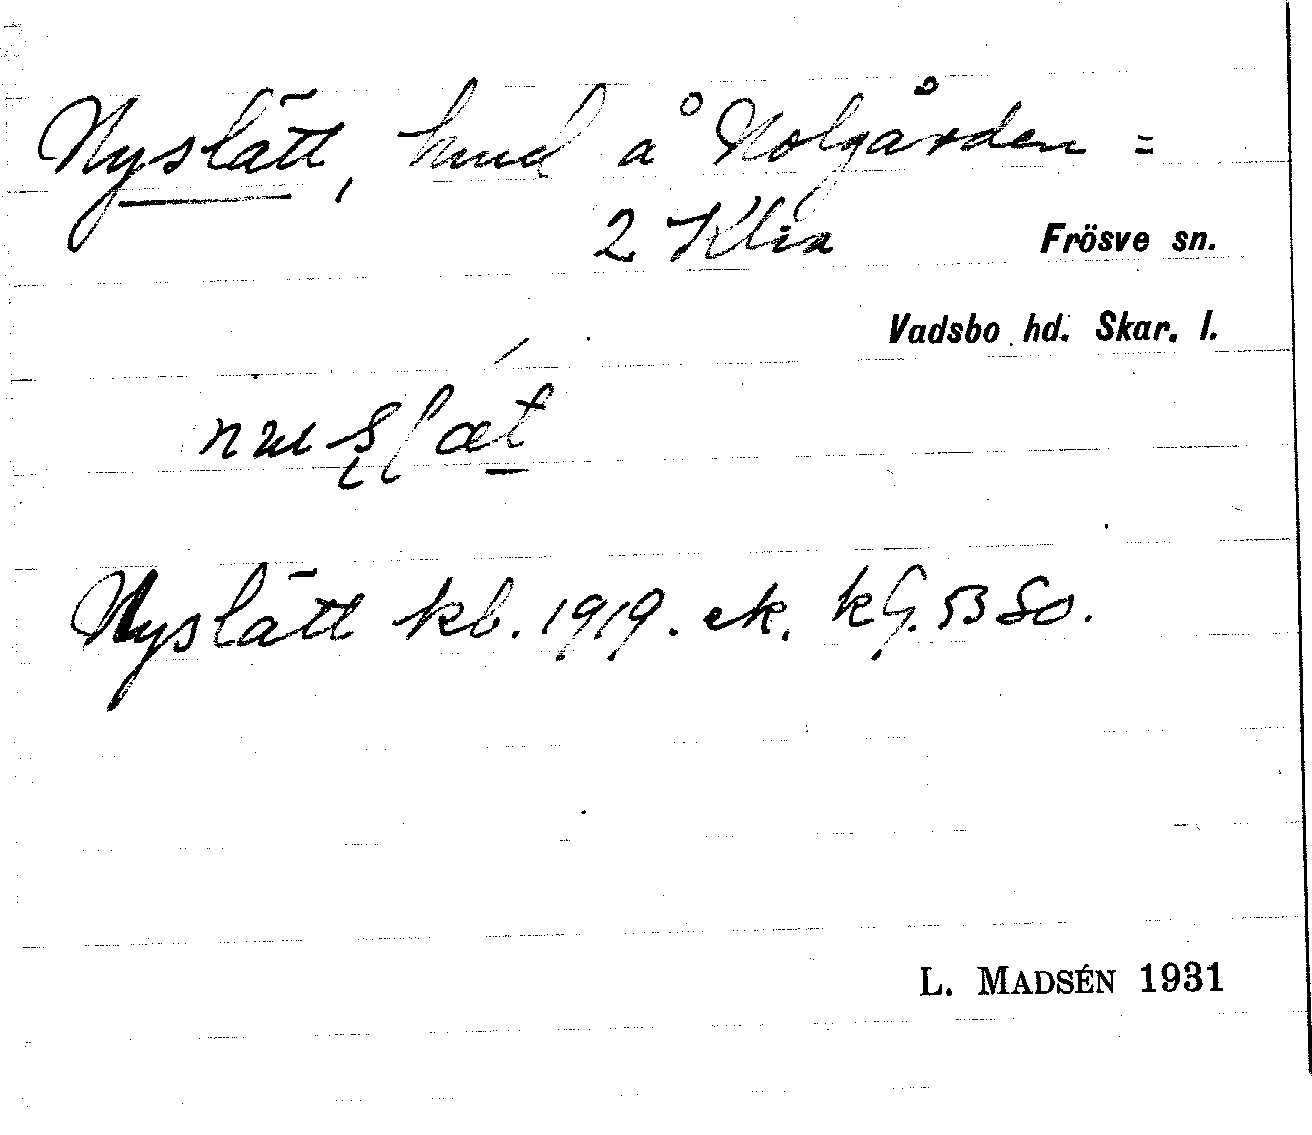 Nyslätt, hmd å Nolgården =
2 Klia
Frösve sn.
Vadsbo hd. Skar. l.
Nyslätt kb. 1919. ek. kG. 53 So.
L. MADSÉN 1931